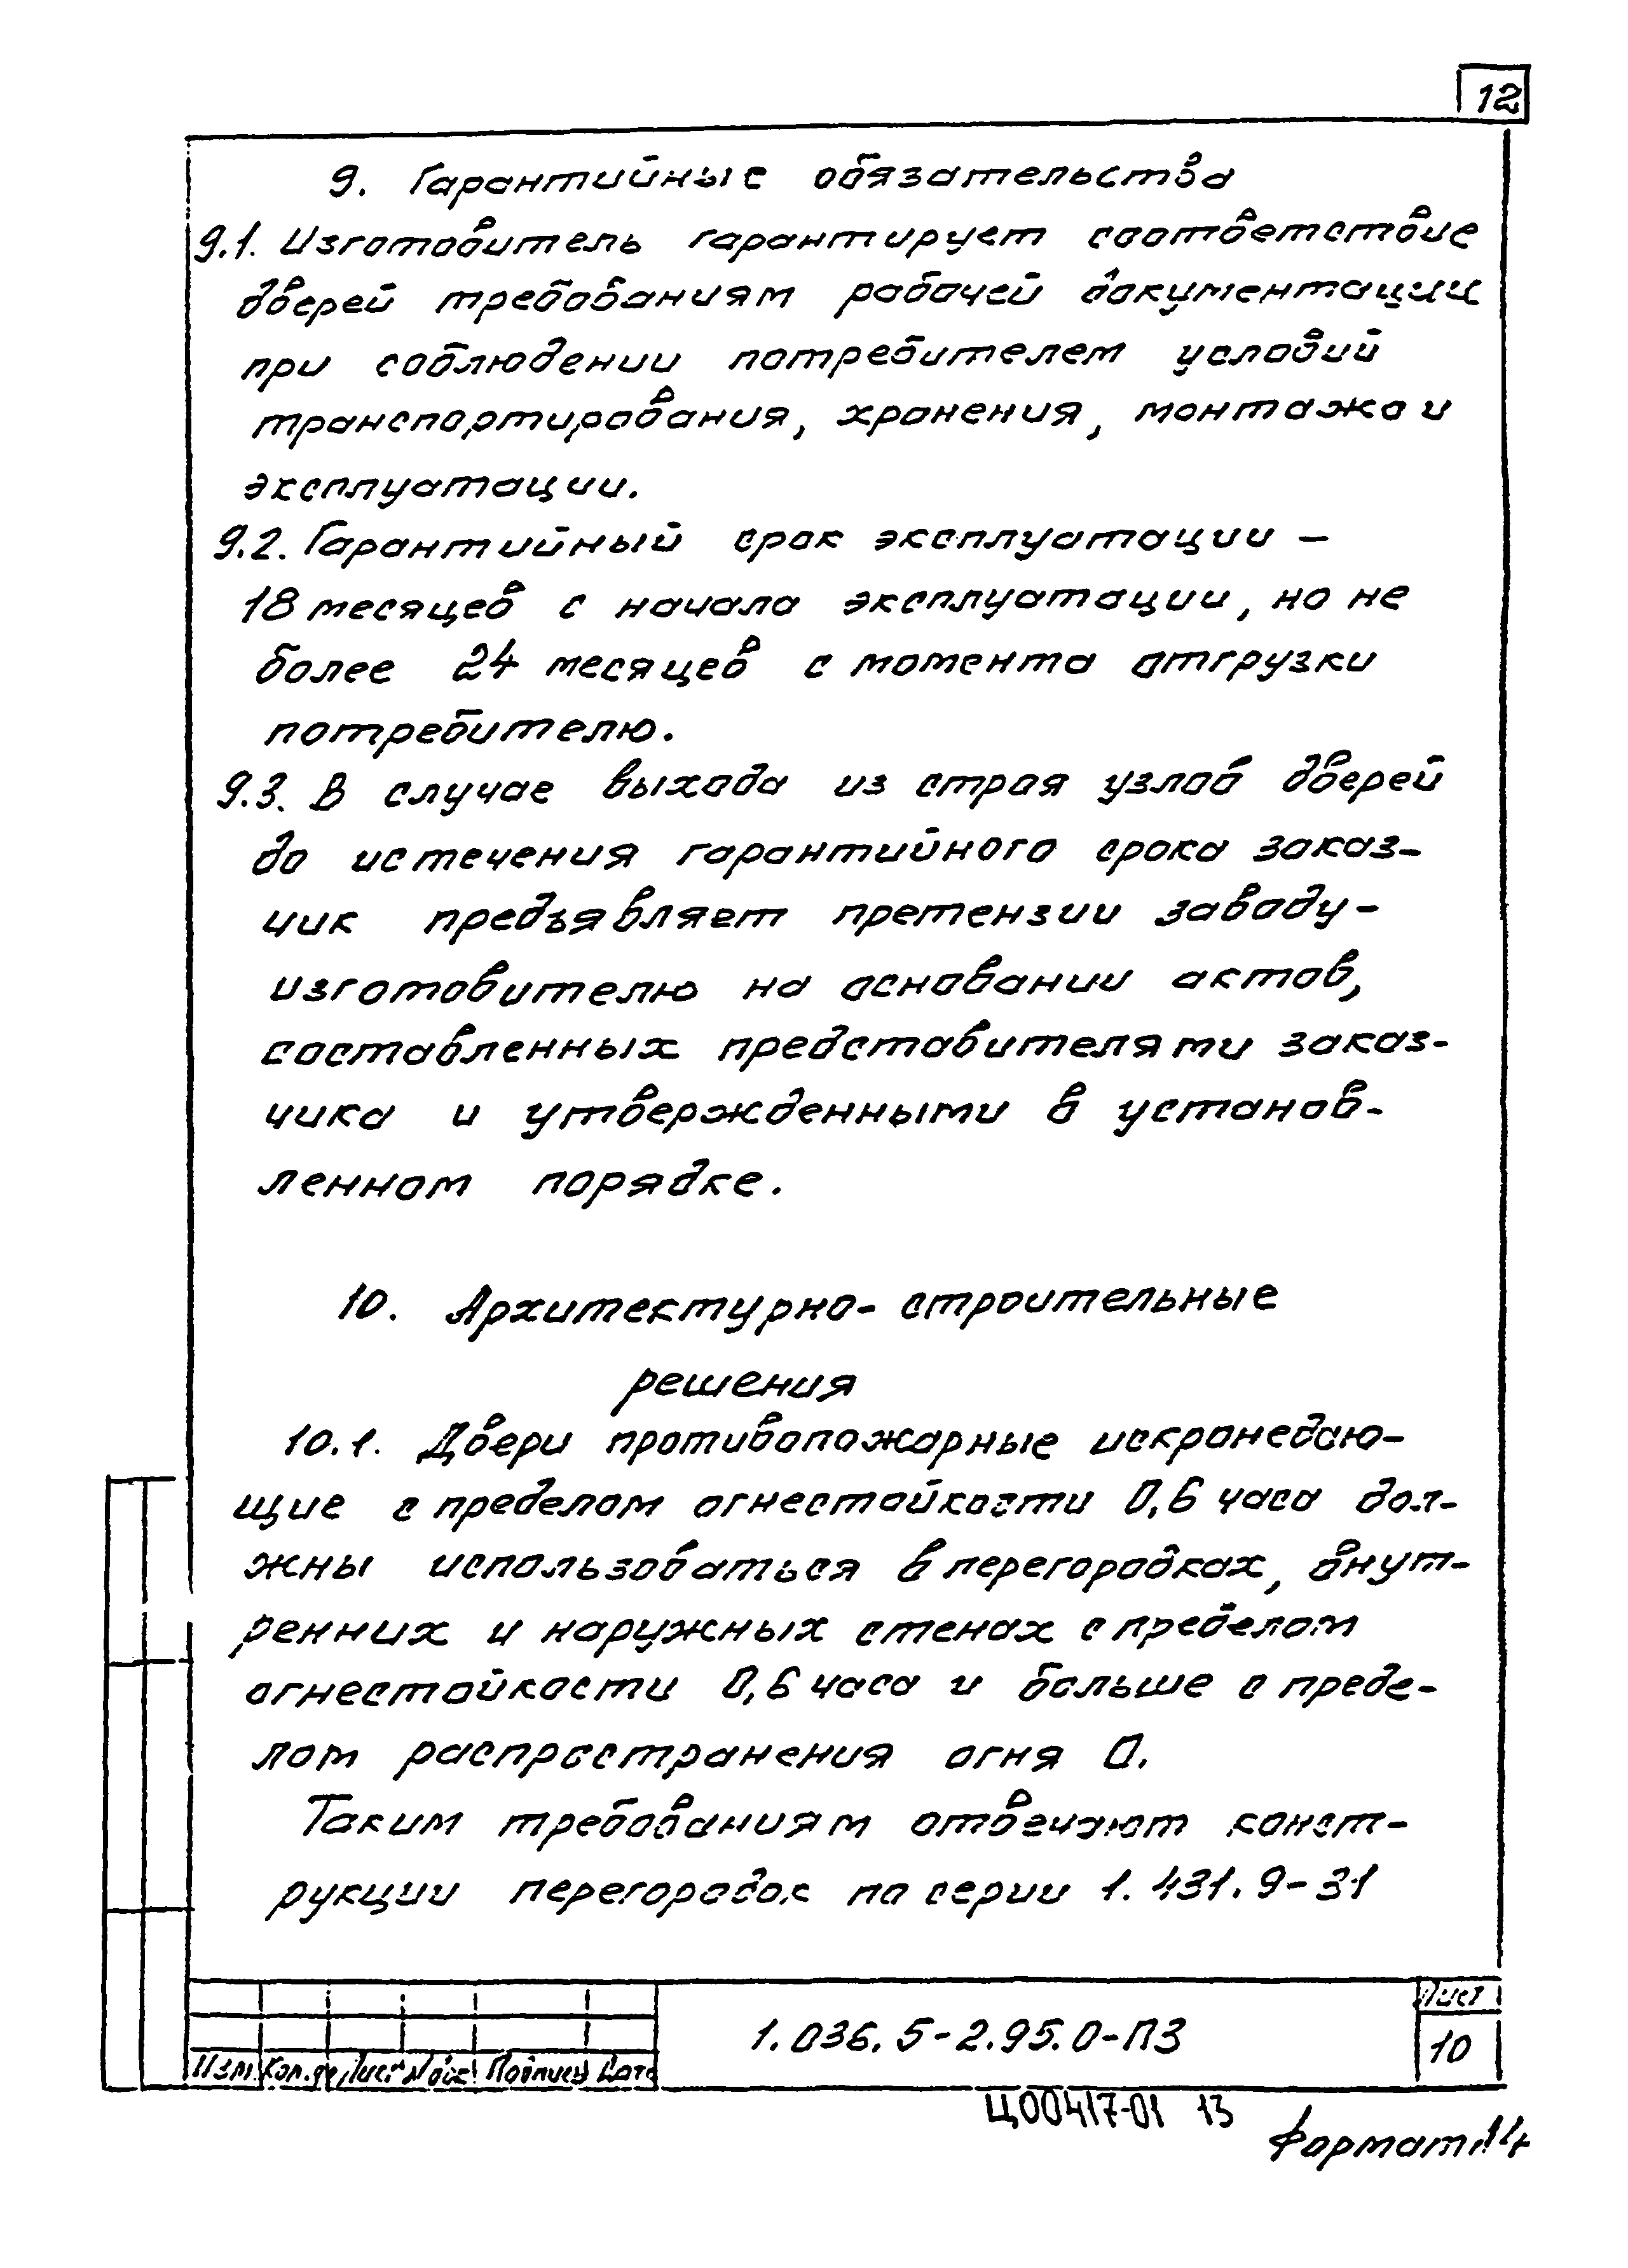 12
9. Гарантийные обязательства
9.1. Изготовитель гарантирует соответствие
дверей требованиям рабочей документации
при соблюдении потребителем условий
транспортирования, хранения, монтажа и
эксплуатации.
9.2. Гарантийный срок эксплуатации –
18 месяцев с начала эксплуатации, но не
более 24 месяцев с момента отгрузки
потребителю.
9.3. В случае выхода из строя узлов дверей
до истечения гарантийного срока заказ-
чик предъявляет претензии заводу-
изготовителю на основании актов,
составленных представителями заказ-
чика и утвержденными в установ-
ленном порядке.
10. Архитектурно-строительные
решения
10.1. Двери противопожарные искронедаю-
щие с пределом огнестойкости 0,6 часа дол-
жны использоваться в перегородках, внут-
ренних и наружных стенах с пределом
огнестойкости 0,6 часа и больше с преде-
лом распространения огня 0.
Таким требованиям отвечают конст-
рукции перегородок по серии 1.431.9-31
Изм. Кол.уч. Лист №док. Подпись Дата
1.036.5-2.95.0-ПЗ
Лист
10
Ц00417-01 13
Формат А4